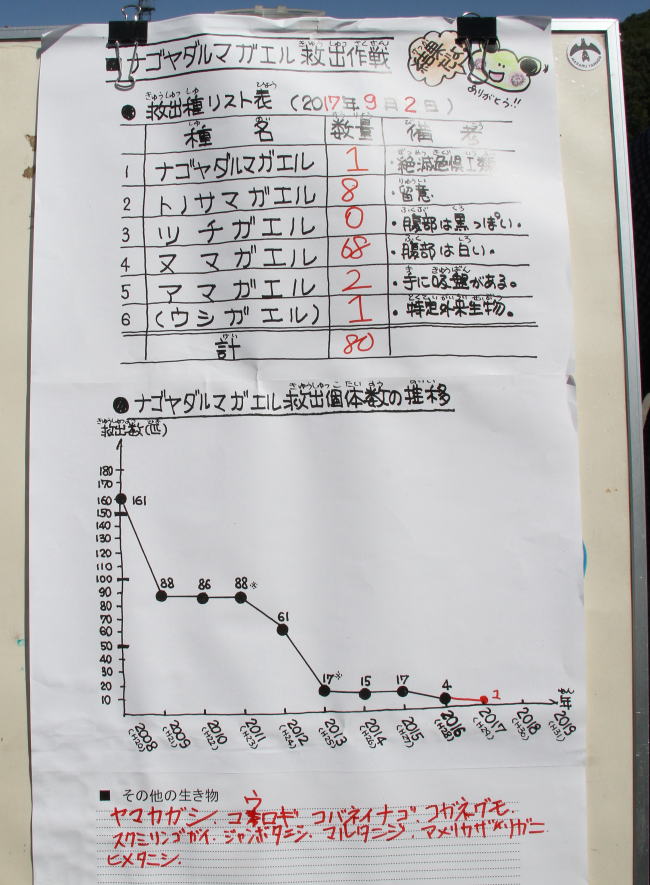 ナゴヤダルマガエル救出作戦
結果
ありがとう!!
● 救出種リスト表 (2017年9月2日)
種名 数量 備考
1 ナゴヤダルマガエル 1 ・絶滅危惧Ⅰ類
2 トノサマガエル 8 ・留意
3 ツチガエル 0 ・腹部は黒っぽい。
4 ヌマガエル 68 ・腹部は白い。
5 アマガエル 2 ・手に吸盤がある。
6 (ウシガエル) 1 ・特定外来生物。
計 80
● ナゴヤダルマガエル救出個体数の推移
救出数(匹)
180
170
160
150
140
130
120
110
100
90
80
70
60
50
40
30
20
10
161 88 86 88※ 61 17※ 15 17 4 1
年
2008 2009 2010 2011 2012 2013 2014 2015 2016 2017 2018 2019
(H20) (H21) (H22) (H23) (H24) (H25) (H26) (H27) (H28) (H29) (H30) (H31)
■ その他の生き物
ヤマカガシ. コウロギ コバネイナゴ コガネグモ.
スクミリンゴガイ. ジャンボタニシ. マルタニシ. アメリカザリガニ
ヒメタニシ.